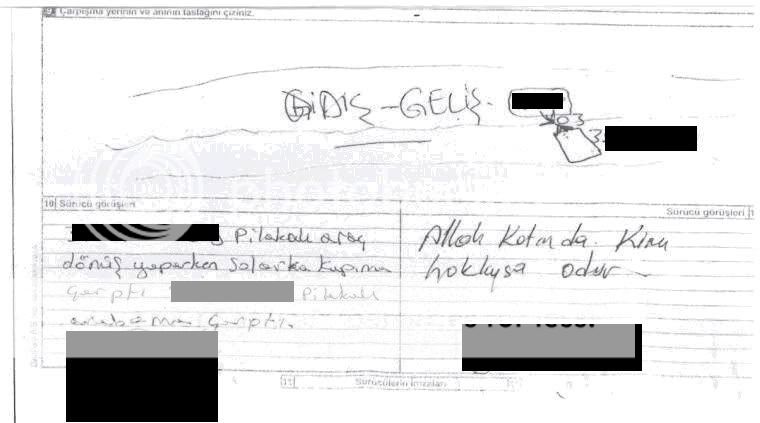 9 Çarpışma yerinin ve anının taslağını çiziniz.
GİDİŞ - GELİŞ
03
3
10 Sürücü görüşleri
Sürücü görüşleri 1
Pilakalı araç
dönüş yaparken Sol arka kapıma
Çarptı Pilakalı
arabama Çarptı.
Allah Katında Kim
haklıysa odur
11 Sürücülerin imzaları